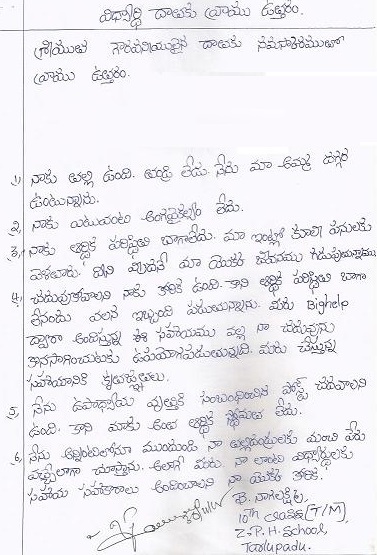 విద్యార్థి దాతకు వ్రాయు ఉత్తరం.
గౌరవనీయులైన దాతకు నమస్కారములతో
వ్రాయు ఉత్తరం.
1) నాకు తల్లి ఉంది. తండ్రి లేడు. నేను మా అమ్మ దగ్గర
ఉంటున్నాను.
2, నాకు ఎటువంటి అంగవైకల్యం లేదు.
3, నాకు ఆర్థిక పరిస్థితి బాగాలేదు. మా ఇంట్లో కూలి పనులకు
వెళతారు. దాని మీదనే మా యొక్క జీవనము గడుపుతున్నాము
4, చదువుకోవాలని నాకు కోరిక ఉంది. కాని ఆర్థిక పరిస్థితి బాగా
లేనందు వలన ఇబ్బంది పడుతున్నాను. మీరు Bighelp
ద్వారా అందిస్తున్న ఈ సహాయము వల్ల నా చదువును
కొనసాగించుటకు ఉపయోగపడుతున్నది. మీరు చేస్తున్న
సహాయానికి కృతజ్ఞతలు.
5, నేను ఉపాధ్యాయ వృత్తికి సంబంధించిన కోర్స్ చదవాలని
ఉంది. కాని మాకు అంత ఆర్థిక స్థోమత లేదు.
6, నేను అన్నింటిలోనూ ముందుండి నా తల్లిదండ్రులకు మంచి పేరు
వచ్చేలాగా చూస్తాను. అలాగే మీరు నా లాంటి విద్యార్థులకు
సహాయ సహకారాలు అందించాలని నా యొక్క కోరిక.
B. నాగలక్ష్మి,
10th class (T/M)
Z.P.H. School,
Tadupadu.